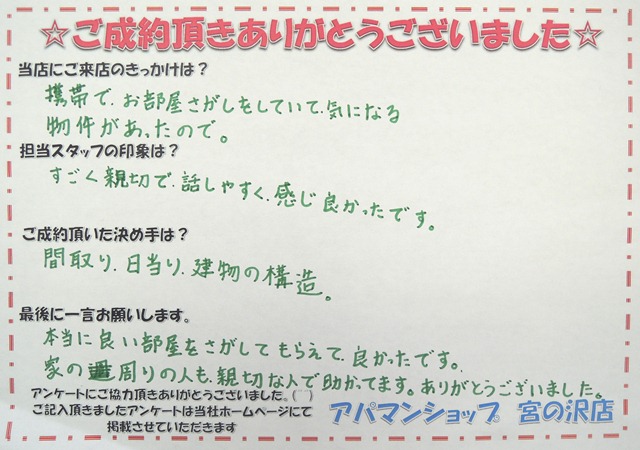 ☆ご成約頂きありがとうございました☆
当店にご来店のきっかけは？
携帯で、お部屋さがしをしていて、気になる
物件があったので。
担当スタッフの印象は？
すごく親切で、話しやすく、感じ良かったです。
ご成約頂いた決め手は？
間取り、日当り、建物の構造。
最後に一言お願いします。
本当に良い部屋をさがしてもらえて、良かったです。
家の周りの人も、親切な人で助かってます。ありがとうございました。
アンケートにご協力頂きありがとうございました。(⌒⌒)
ご記入頂きましたアンケートは当社ホームページにて
掲載させていただきます
アパマンショップ 宮の沢店